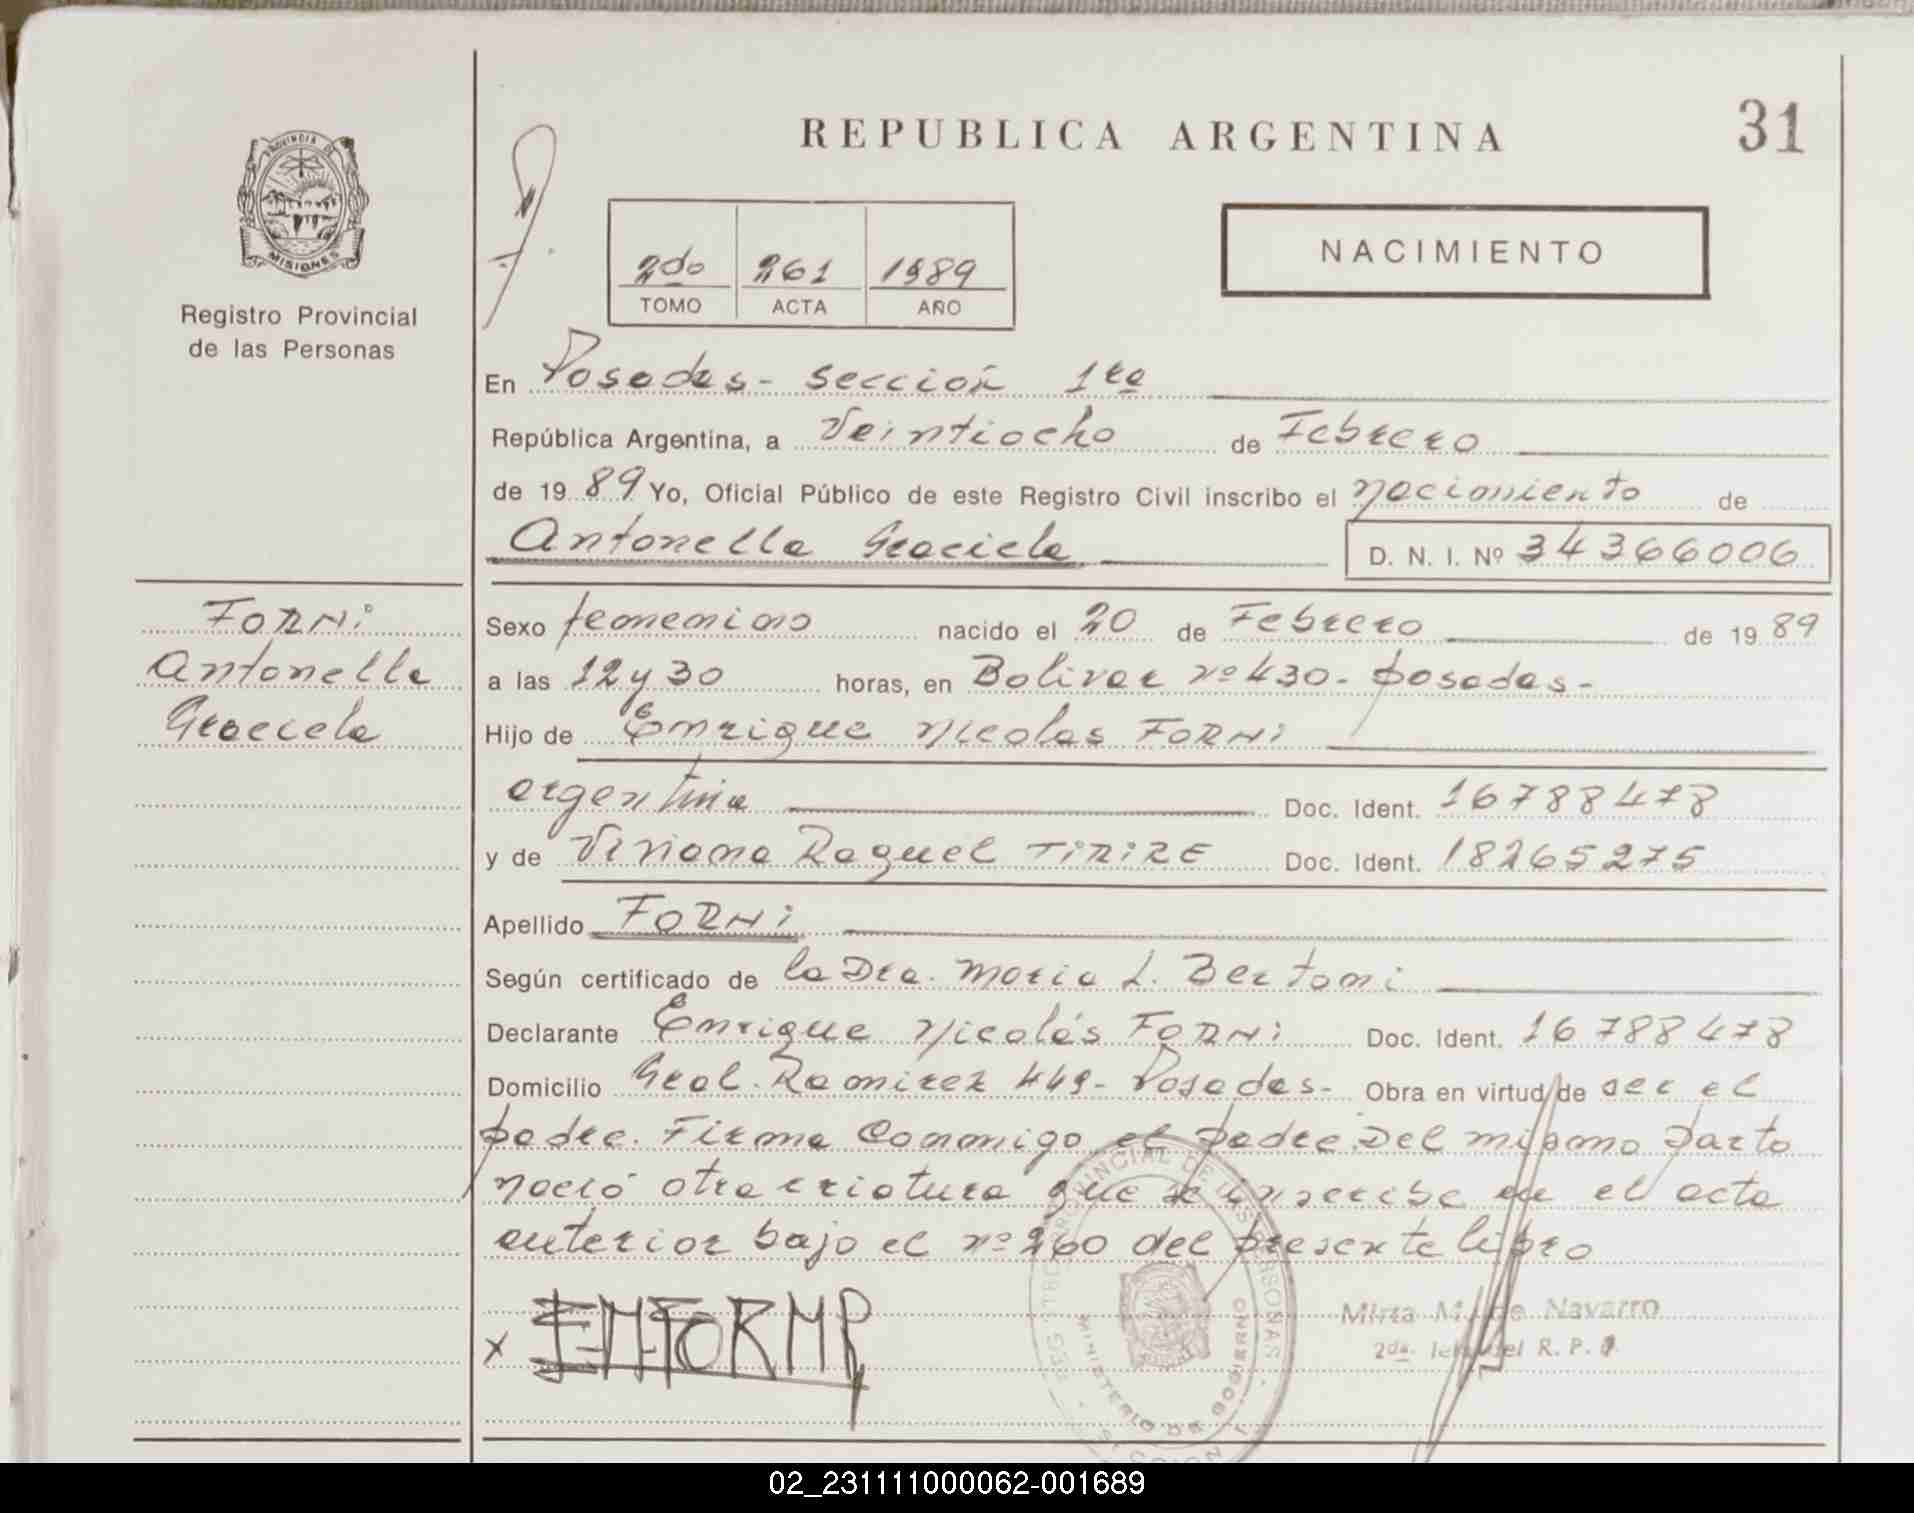 REPUBLICA ARGENTINA
31
PROVINCIA DE
MISIONES
Registro Provincial
de las Personas
2do 261 1989
TOMO ACTA AÑO
NACIMIENTO
En Posadas - sección 1ra
República Argentina, a Veintiocho de Febrero
de 1989 Yo, Oficial Público de este Registro Civil inscribo el nacimiento de
Antonella Graciela D. N. I. Nº 34366006
Forni
Antonella
Graciela
Sexo femenino nacido el 20 de Febrero de 1989
a las 12 y 30 horas, en Bolivar nº 430 - Posadas -
Hijo de Enrique Nicolas Forni
argentina Doc. Ident. 16788478
y de Viviana Raquel Tirire Doc. Ident. 18265275
Apellido Forni
Según certificado de la Dra. Maria L. Bertoni
Declarante Enrique Nicolás Forni Doc. Ident. 16788478
Domicilio Gral. Ramirez 449 - Posadas - Obra en virtud de ser el
padre. Firma Conmigo el padre. Del mismo parto
nació otra criatura que se inscribe en el acta
anterior bajo el nº 260 del presente libro
x
Mirta M. de Navarro
2da. Jefa del R. P. P.
MINISTERIO DE GOBIERNO
02_231111000062-001689